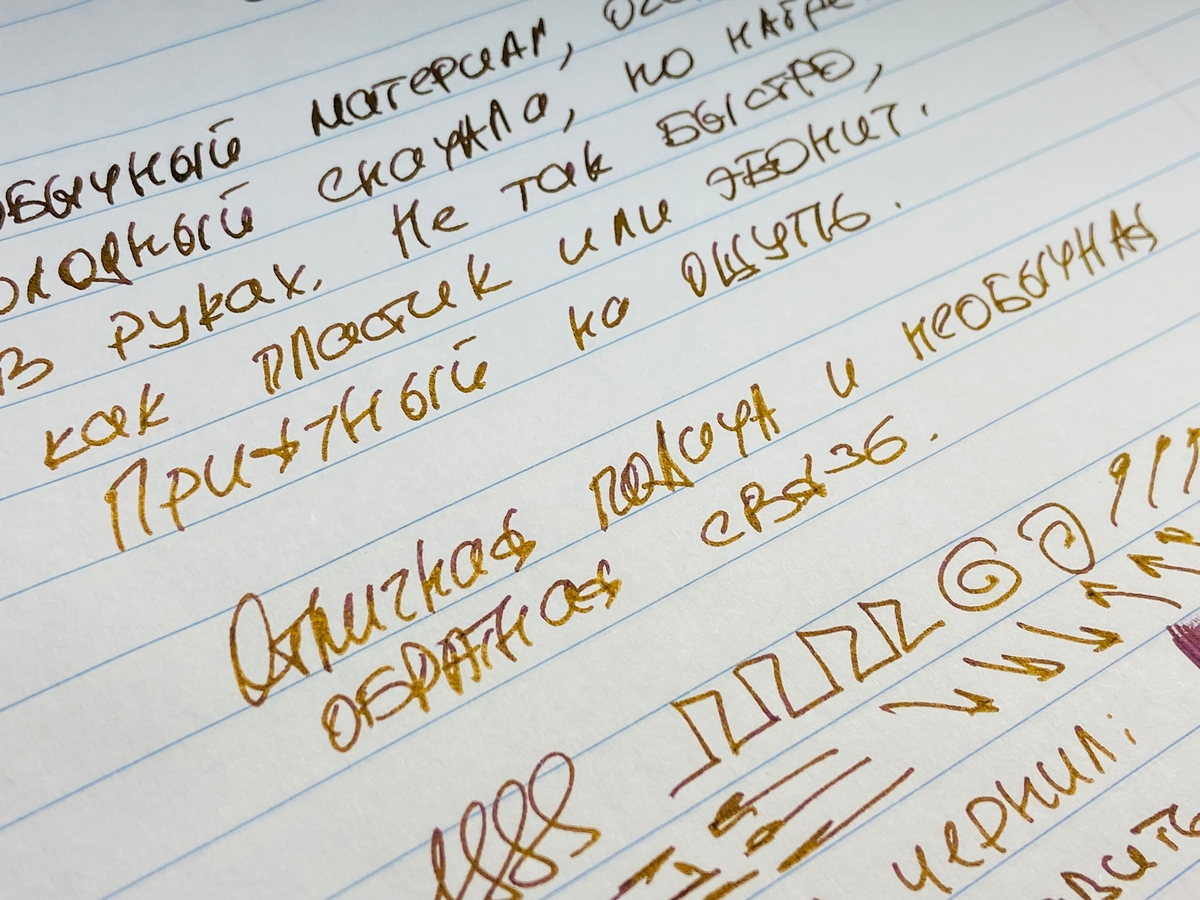 обычный материал,
холодный сначала, но
в руках. Не так быстро,
как пластик или эбонит.
Приятный на ощупь.
Отличная подача и необычная
обратная связь.
чернил: